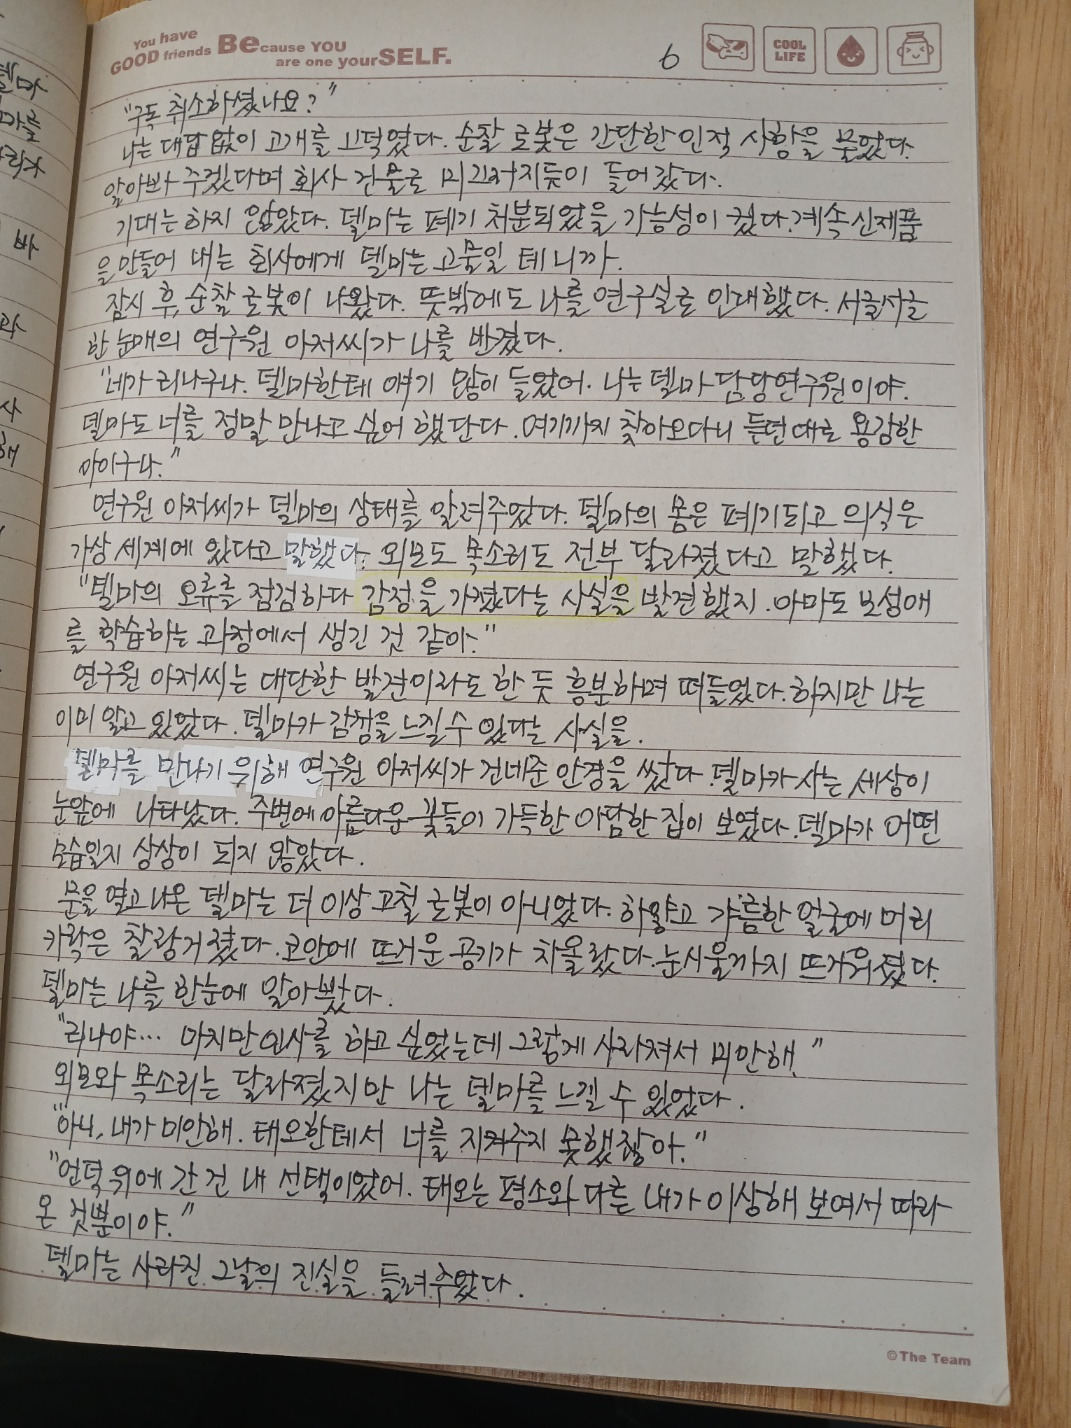 You have
GOOD friends BEcause YOU
are one yourSELF.
6
COOL
LIFE
"구독 취소하셨나요?"
나는 대답 없이 고개를 끄덕였다. 순찰 로봇은 간단한 인적 사항을 물었다.
알아봐 주겠다며 회사 건물로 미끄러지듯이 들어갔다.
기대는 하지 않았다. 델마는 폐기 처분되었을 가능성이 컸다. 계속 신제품
을 만들어 내는 회사에게 델마는 고물일 테니까.
잠시 후, 순찰 로봇이 나왔다. 뜻밖에도 나를 연구실로 안내했다. 서글서글
한 눈매의 연구원 아저씨가 나를 반겼다.
"네가 리나구나. 델마한테 얘기 많이 들었어. 나는 델마 담당연구원이야.
델마도 너를 정말 만나고 싶어 했단다. 여기까지 찾아오다니 듣던 대로 용감한
아이구나."
연구원 아저씨가 델마의 상태를 알려주었다. 델마의 몸은 폐기되고 의식은
가상 세계에 있다고 말했다. 외모도 목소리도 전부 달라졌다고 말했다.
"델마의 오류를 점검하다 감정을 가졌다는 사실을 발견했지. 아마도 모성애
를 학습하는 과정에서 생긴 것 같아."
연구원 아저씨는 대단한 발견이라도 한 듯 흥분하며 떠들었다. 하지만 나는
이미 알고 있었다. 델마가 감정을 느낄 수 있다는 사실을.
델마를 만나기 위해 연구원 아저씨가 건네준 안경을 썼다. 델마가 사는 세상이
눈앞에 나타났다. 주변에 아름다운 꽃들이 가득한 아담한 집이 보였다. 델마가 어떤
모습일지 상상이 되지 않았다.
문을 열고 나온 델마는 더 이상 고철 로봇이 아니었다. 하얗고 갸름한 얼굴에 머리
카락은 찰랑거렸다. 코안에 뜨거운 공기가 차올랐다. 눈시울까지 뜨거워졌다.
델마는 나를 한눈에 알아봤다.
"리나야... 마지막 인사를 하고 싶었는데 그렇게 사라져서 미안해."
외모와 목소리는 달라졌지만 나는 델마를 느낄 수 있었다.
"아니, 내가 미안해. 태오한테서 너를 지켜주지 못했잖아."
"언덕 위에 간 건 내 선택이었어. 태오는 평소와 다른 내가 이상해 보여서 따라
온 것뿐이야."
델마는 사라진 그날의 진실을 들려주었다.
©The Team